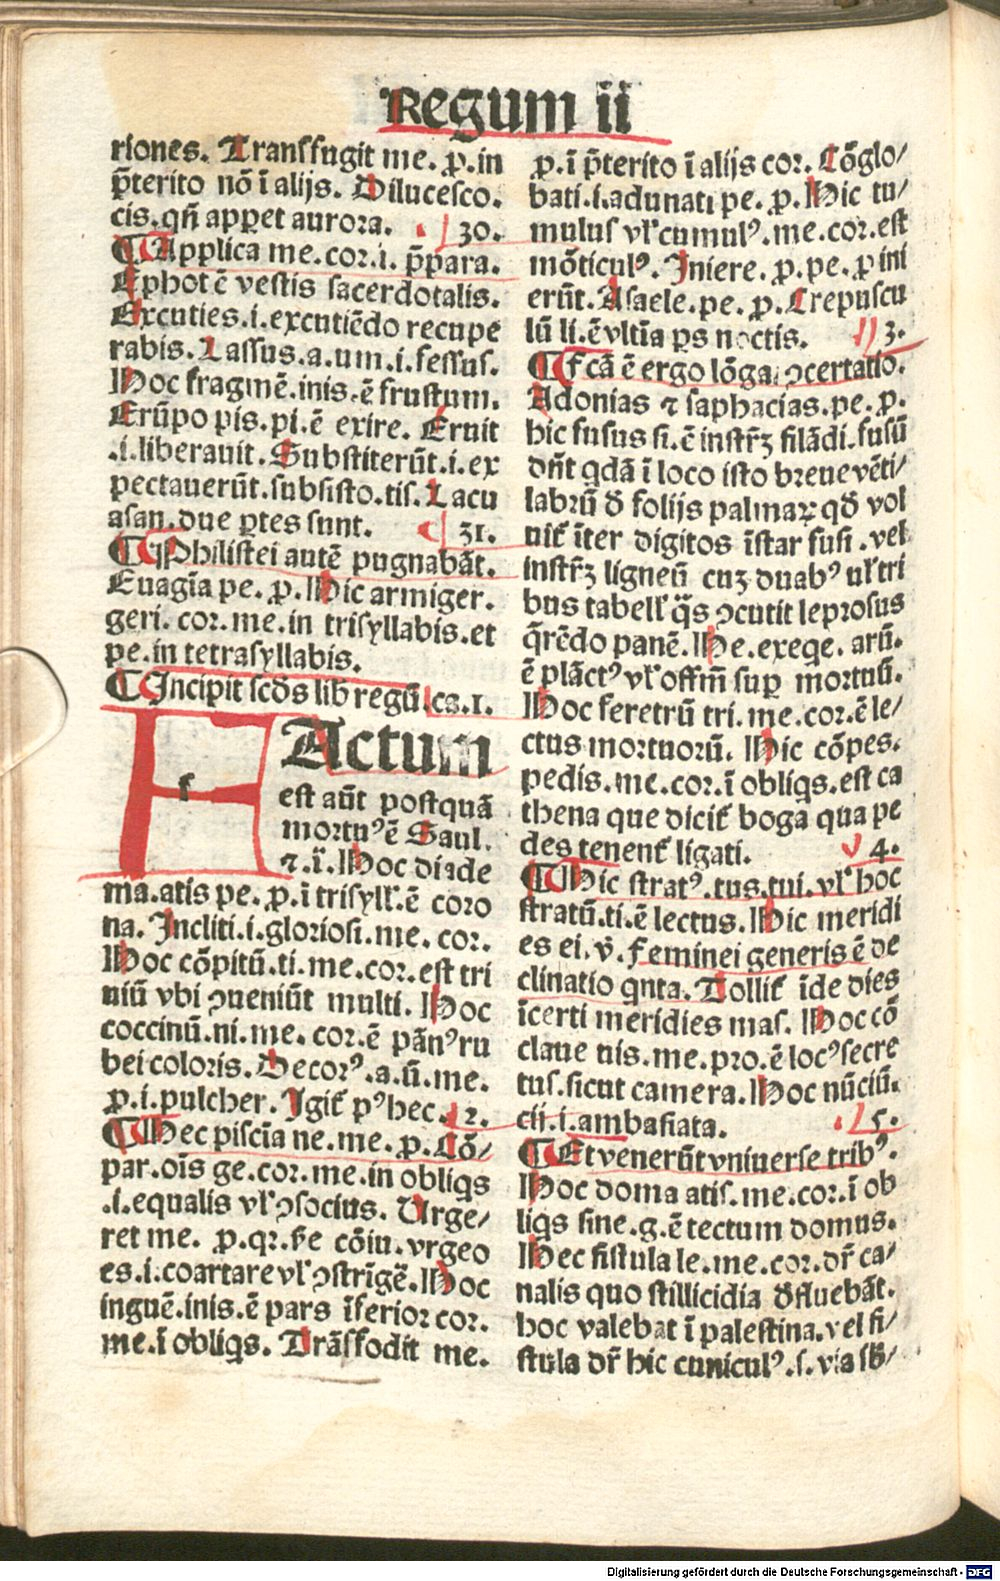 Regum ii
riones. Transfugit me. ꝓ. in
p̄terito nō ī alijs. Dilucesco.
cis. qn̄ apꝑet aurora. 30.
¶ Applica me. cor. i. p̄para.
Ephot ē vestis sacerdotalis.
Excuties .i. excutiēdo recupe
rabis. Lassus. a. um. i. fessus.
Hoc fragmē. inis. ē frustum.
Erūpo pis. pi. ē exire. Eruit
.i. liberauit. Substiterūt .i. ex
pectauerūt. subsisto. tis. Lacu
asan. due ꝑtes sunt. 31.
¶ Philistei autē pugnabāt.
Euagīa pe. ꝓ. Hic armiger.
geri. cor. me. in trisyllabis. et
pe. in tetrasyllabis.
¶ Incipit scd̄s lib regū. ca. 1.
f Actum
est aūt postquā
mortuꝰ ē Saul.
⁊ ī. Hoc diade
ma. atis pe. ꝓ. ī trisyll'. ē coro
na. Incliti .i. gloriosi. me. cor.
Hoc cōpitū. ti. me. cor. est tri
niū vbi ꝯueniūt multi. Hoc
coccinū. ni. me. cor. ē pānꝰ ru
bei coloris. Decorꝰ. a. ū. me.
ꝓ. i. pulcher. Igit' pꝰ hec. 2.
¶ Hec piscīa ne. me. ꝓ. Cō/
par. oīs ge. cor. me. in obliqs
.i. equalis vl' ꝯsocius. Urge/
ret me. ꝓ. qꝛ. scd̄e cōiu. vrgeo
es. i. coartare vl' ꝯstrīgē. Hoc
inguē. inis. ē pars īferior cor.
me. ī obliqs. Trāsfodit me.
ꝓ. ī p̄terito ī alijs cor. Cōglo/
bati. i. adunati pe. ꝓ. Hic tu/
mulus vl' cumulꝰ. me. cor. est
mōticulꝰ. Iniere. ꝓ. pe. ꝓ ini
erūt. Asaele. pe. ꝓ. Crepuscu
lū li. ē vltīa ꝑs noctis. 3.
¶ Fcā ē ergo lōga ꝯcertatio.
Adonias ⁊ saphacias. pe. ꝓ.
hic fusus si. ē instr̄ꝫ filādi. fusū
dn̄t qdā ī loco isto breue vēti/
labrū ð folijs palmaꝝ qð vol
uit' īter digitos īstar fusi. vel
instr̄ꝫ ligneū cuꝫ duabꝰ vl' tri
bus tabell' q̄s ꝯcutit leprosus
q̄rēdo panē. He. exeqe. arū.
ē plāctꝰ vl' offīn̄ suꝑ mortuū.
Hoc feretrū tri. me. cor. ē le/
ctus mortuorū. Hic cōpes.
pedis. me. cor. ī obliqs. est ca
thena que dicit' boga qua pe
des tenent' ligati. 4.
¶ Hic stratꝰ. tus. tui. vl' hoc
stratū. ti. ē lectus. Hic meridi
es ei. v̄. feminei generis ē de
clinatio qnta. Tollit' īde dies
īcerti meridies mas. Hoc cō
claue uis. me. pro. ē locꝰ secre
tus. sicut camera. Hoc nūciū.
cij. i. ambasiata. 5.
¶ Et venerūt vniuerse tribꝰ.
Hoc doma atis. me. cor. ī ob
liqs sine. g. ē tectum domus.
Hec fistula le. me. cor. dr̄ ca/
nalis quo stillicidia ðfluebāt.
hoc valebat ī palestina. vel fi/
stula dr̄ hic cuniculꝰ. s. via sb̄/
Digitalisierung gefördert durch die Deutsche Forschungsgemeinschaft - DFG